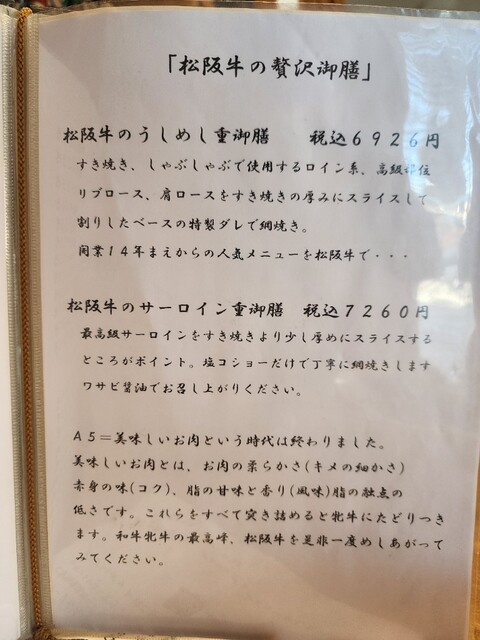 「松阪牛の贅沢御膳」
松阪牛のうしめし重御膳 税込6926円
すき焼き、しゃぶしゃぶで使用するロイン系、高級部位
リブロース、肩ロースをすき焼きの厚みにスライスして
割りしたベースの特製ダレで網焼き。
開業14年まえからの人気メニューを松阪牛で・・・
松阪牛のサーロイン重御膳 税込7260円
最高級サーロインをすき焼きより少し厚めにスライスする
ところがポイント。塩コショーだけで丁寧に網焼きします
ワサビ醤油でお召し上がりください。
A5=美味しいお肉という時代は終わりました。
美味しいお肉とは、お肉の柔らかさ(キメの細かさ)
赤身の味(コク)、脂の甘味と香り(風味)脂の融点の
低さです。これらをすべて突き詰めると牝牛にたどりつき
ます。和牛牝牛の最高峰、松阪牛を是非一度めしあがって
みてください。